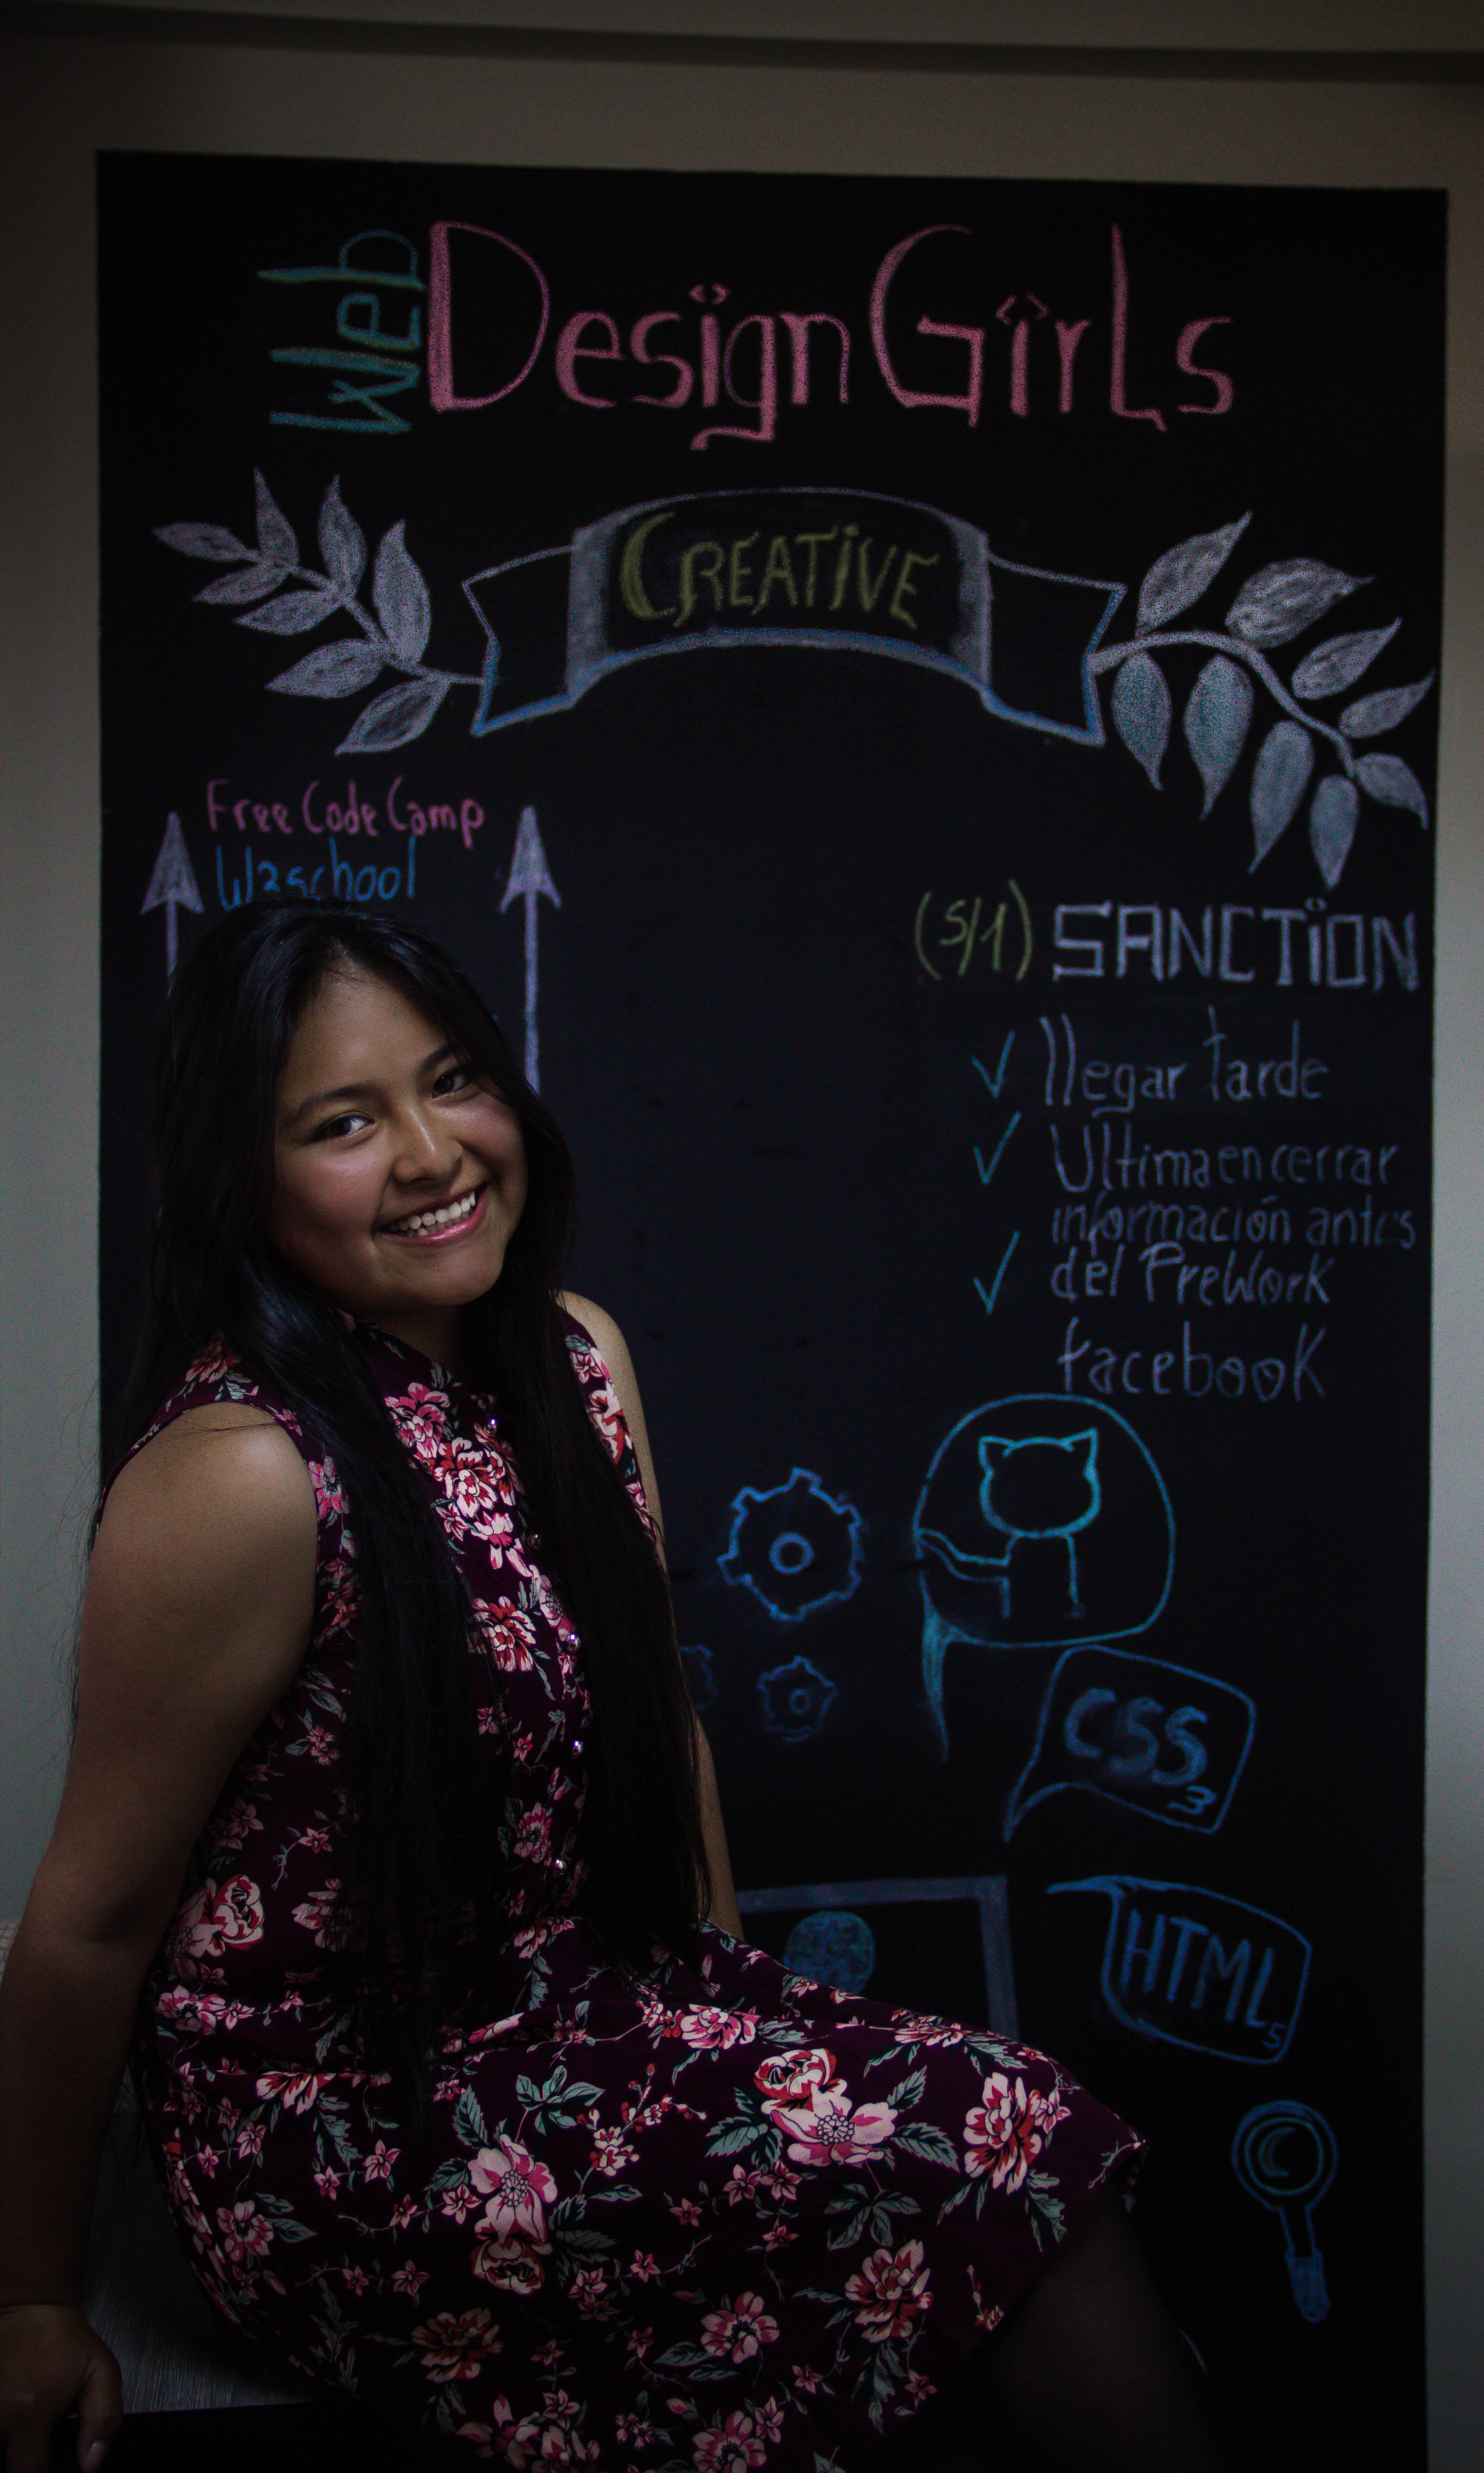 Web
Design Girls
CREATIVE
Free Code Camp
W3school
(S/1) SANCTION
llegar tarde
Ultima en cerrar
información antes
del PreWork
facebook
CSS
3
HTML
5